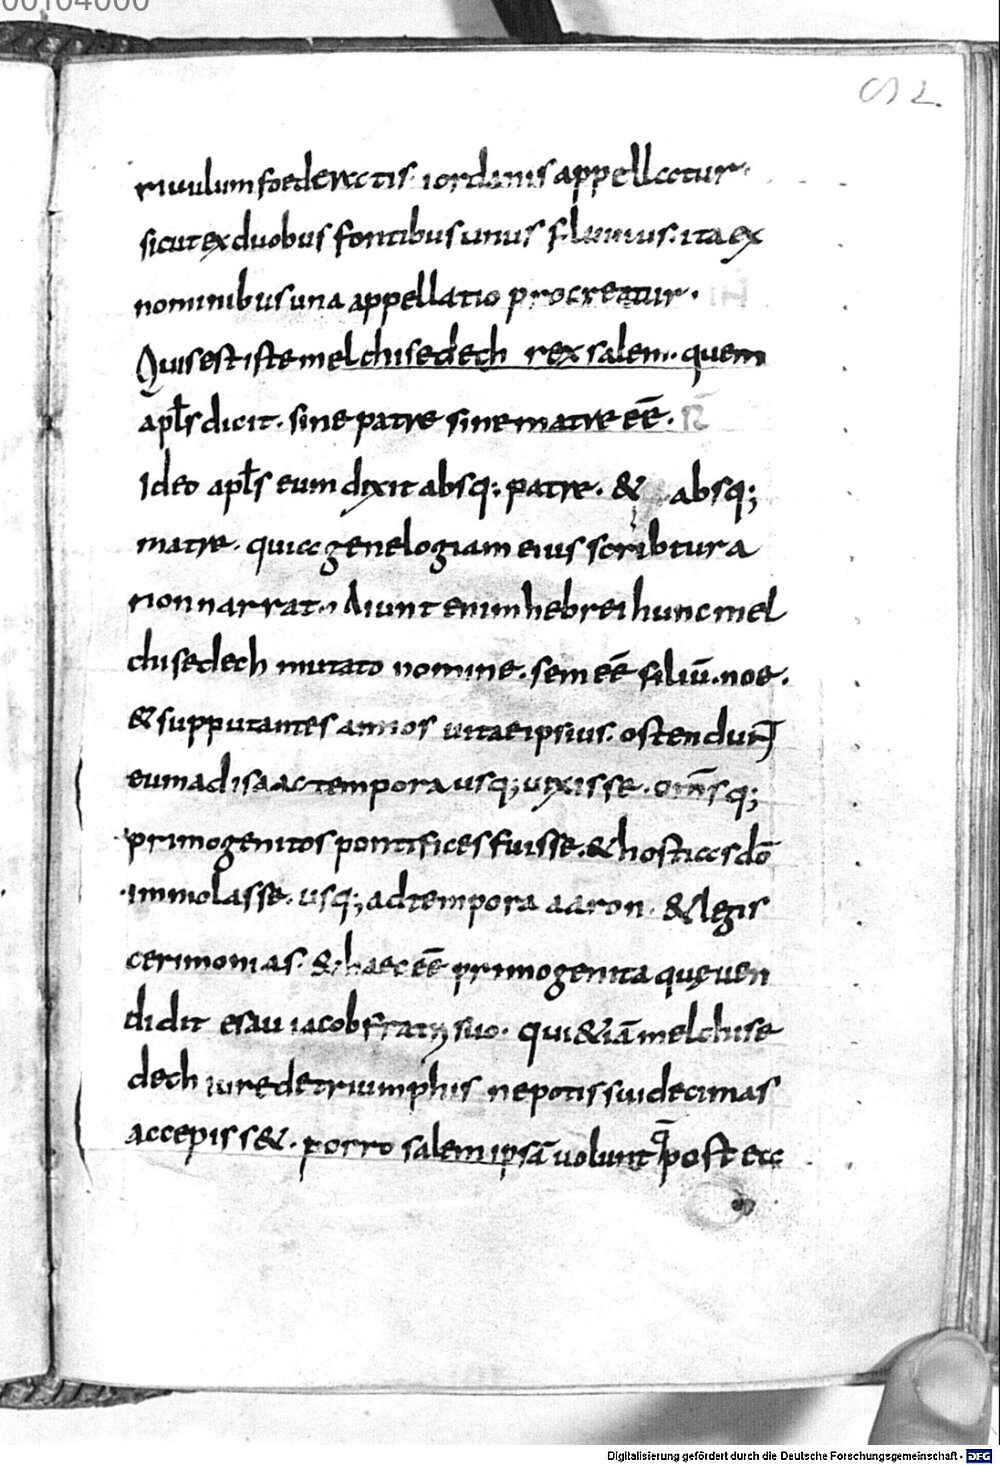 00104000
52.
riuulum foederatis iordanis appellatur.
sicut ex duobus fontibus unus fluuius. ita ex
nominibus una appellatio procreatur.
Quis est iste melchisedech rex salem. quem
apl̄s dicit. sine patre sine matre eē. R̄
Ideo apl̄s eum dixit absq; patre. & absq;
matre. quia genelogiam eius scribtura
non narrat. Aiunt enim hebrei hunc mel
chisedech mutato nomine. sem eē filiū. noe.
& supputantes annos uitae ipsius. ostendunt
eum ad isaac tempora usq; uixisse. om̄sq;
primogenitos pontifices fuisse. & hosticas dō
immolasse. usq; ad tempora aaron. & legis
cerimonias. & haec eē primogenita quę uen
didit esau iacob fratri suo. qui & iā melchise
dech iure de triumphis nepotis sui decimas
accepiss&. porro salem ipsā uolunt q̄ post ea
Digitalisierung gefördert durch die Deutsche Forschungsgemeinschaft - DFG